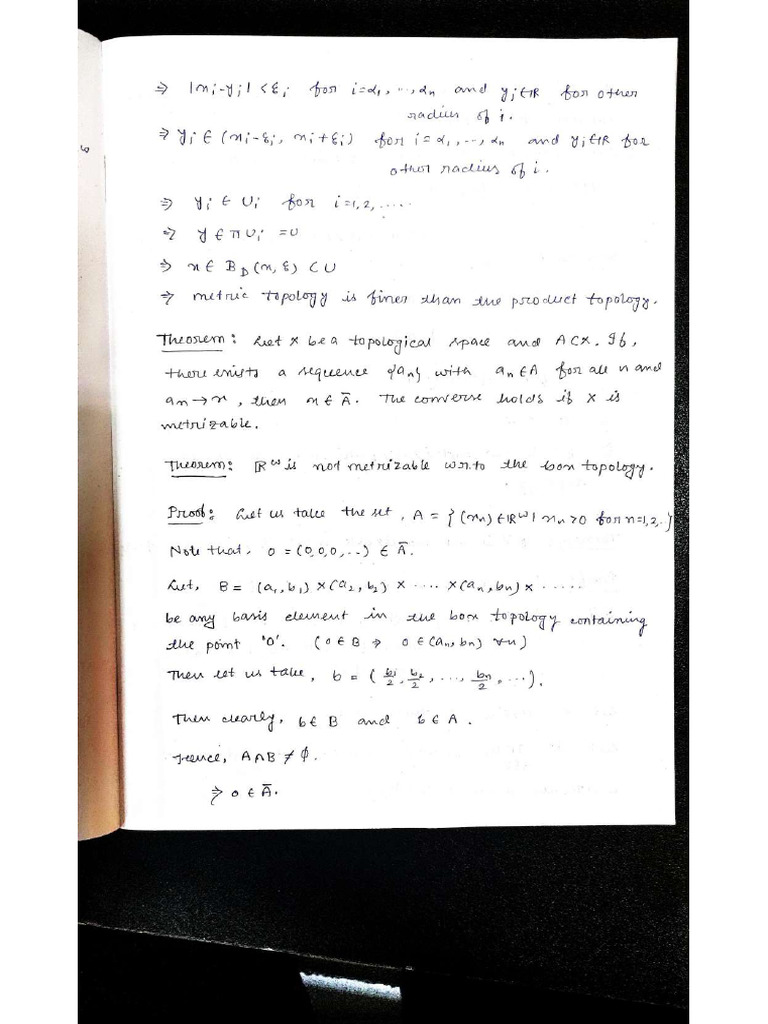 ⇒ |xi-yi| < εi for i=α1, ..., αn and yi∈ℝ for other
radius of i.
⇒ yi ∈ (xi-εi, xi+εi) for i = α1, ..., αn and yi∈ℝ for
other radius of i.
⇒ yi ∈ Ui for i=1,2, .....
⇒ y ∈ πUi = U
⇒ x ∈ BD(x, ε) ⊂ U
⇒ metric topology is finer than the product topology.
Theorem: Let X be a topological space and A⊂X. If,
there exists a sequence {an} with an∈A for all n and
an→x, then x∈Ā. The converse holds if X is
metrizable.
Theorem: ℝ^ω is not metrizable w.r.to the box topology.
Proof: Let us take the set, A = {(xn)∈ℝ^ω | xn>0 for n=1,2,..}
Note that, 0 = (0,0,0,...) ∈ Ā.
Let, B = (a1,b1) × (a2,b2) × .... × (an,bn) × .....
be any basis element in the box topology containing
the point '0'. (0∈B ⇒ 0∈(an,bn) ∀n)
Then let us take, b = (b1/2, b2/2, ..., bn/2, ...).
Then clearly, b∈B and b∈A.
Hence, A∩B ≠ ϕ.
⇒ 0∈Ā.